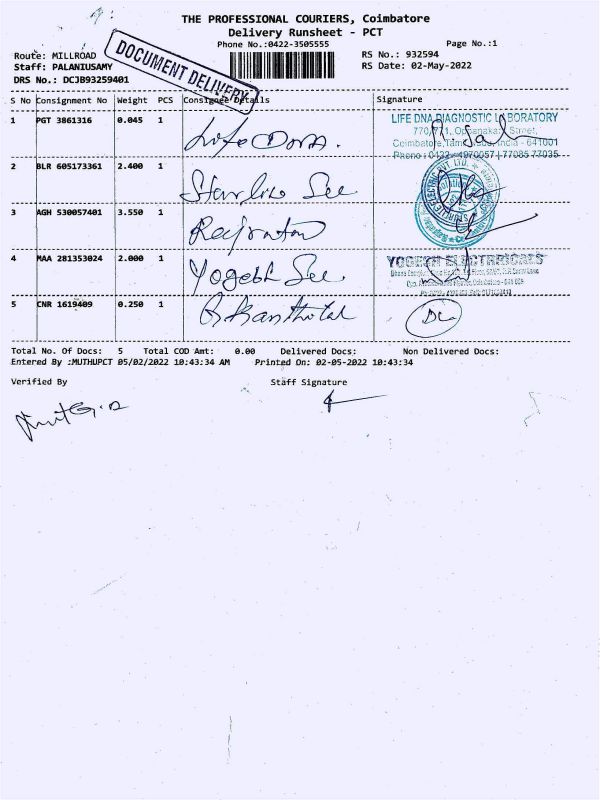 THE PROFESSIONAL COURIERS, Coimbatore
Delivery Runsheet - PCT
Phone No.:0422-3505555
Page No.:1
Route: MILLROAD
Staff: PALANIUSAMY
DRS No.: DCJB93259401
RS No.: 932594
RS Date: 02-May-2022
DOCUMENT DELIVERY
S No Consignment No Weight PCS Consignee Details Signature
1 PGT 3861316 0.045 1
LIFE DNA DIAGNOSTIC LABORATORY
770/771, Oppanakara Street,
Coimbatore, Tamil Nadu, India - 641001
Phone : 0422 - 4970057 | 77085 77035
2 BLR 605173361 2.400 1 Starline See
3 AGH 530057401 3.550 1
4 MAA 281353024 2.000 1 Yogesh See
YOGESH ELECTRICALS
5 CNR 1619409 0.250 1
Total No. Of Docs: 5 Total COD Amt: 0.00 Delivered Docs: Non Delivered Docs:
Entered By :MUTHUPCT 05/02/2022 10:43:34 AM Printed On: 02-05-2022 10:43:34
Verified By Staff Signature